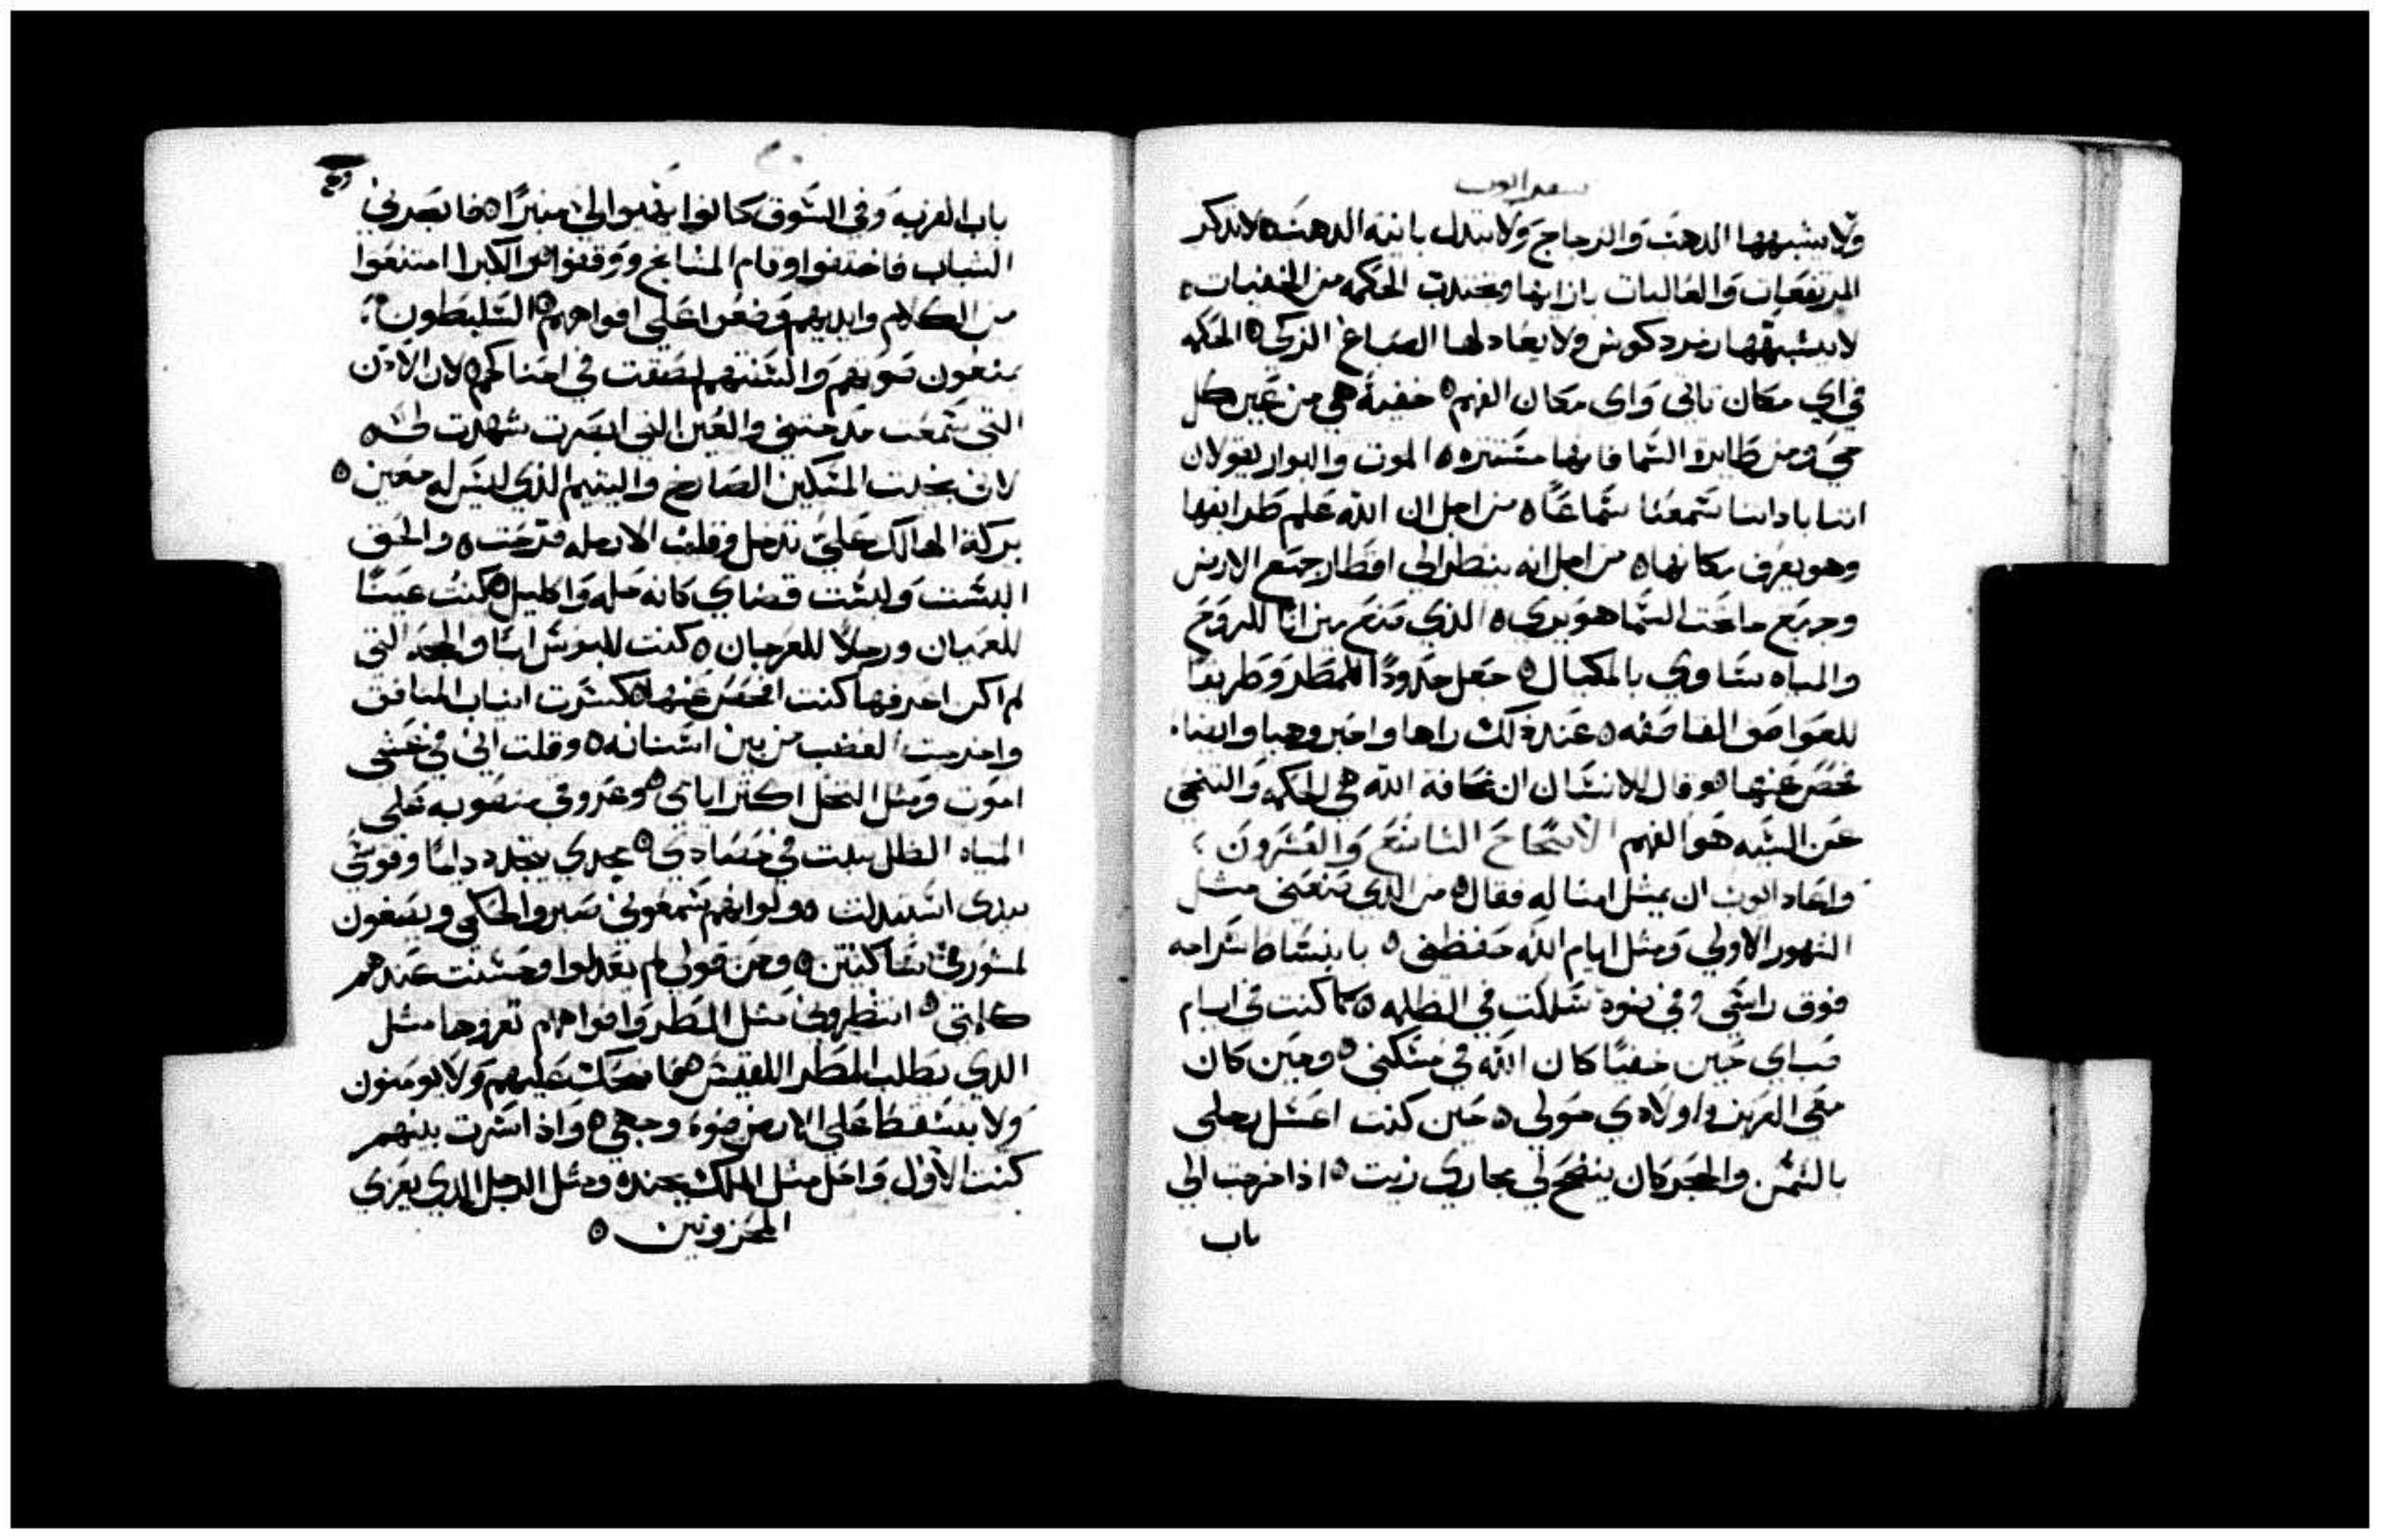 سفر ايوب
ولا يشبهها الدهب والزجاج ولا تبدل بانية الدهب ٥ لا تدكر
المرتفعات والعاليات بازايها وتجتدب الحكمه من الخفيات ٥
لا يشبهها زبرد كوش ولا يعادلها الصباغ الزكي ٥ الحكمه
في اي مكان تاتي واي مكان الفهم ٥ خفية هي من عين كل
حي ومن طايرة السما فانها مستتره ٥ الموت والبوار يقولان
اننا باداننا سمعنا سماعًا ٥ من اجل ان الله علم طرايقها
وهو يعرف مكانها ٥ من اجل انه ينظر الي اقطار جميع الارض
وجميع ما تحت السما هو يري ٥ الذي صنع ميزانًا للروح
والمياه يساوي بالمكيال ٥ جعل حدودًا للمطر وطريقًا
للعواصف القاصفه ٥ عند ذلك راها واخبر وهيا وايضا
فحص عنها ٥ وقال للانسان ان مخافة الله هي الحكمه والتنحي
عن الشر هو الفهم الاصحاح التاسع والعشرون ؛
واعاد ايوب ان يمثل امثاله فقال ٥ من الدي يصنعني مثل
الشهور الاولي ومثل ايام الله حفظني ٥ بانبساط سراجه
فوق راسي وفي ضوه سلكت في الظلمه ٥ كما كنت في ايام
صباي حين خفيًا كان الله في مسكني ٥ وحين كان
معي العزيز واولادي حولي ٥ حين كنت اغسل رجلي
بالسمن والحجر كان ينضح لي مجاري زيت ٥ اذا خرجت الي
باب
باب القريه وفي السوق كانوا يهيوا لي منبرًا ٥ فابصرني
الشباب فاختفوا وقام المشايخ ووقفوا ٥ والاكبرا امتنعوا
من الكلام وايديهم وضعوا علي افواههم ٥ المتسلطون
يمنعون صوتهم والسنتهم لصقت في احناكهم ٥ لان الادن
التي سمعت مدحتني والعين التي ابصرت شهدت لي ٥
لاني نجيت المسكين الصارخ واليتيم الذي ليس له معين ٥
بركة الهالك علي تدخل وقلب الارمله فرحت ٥ والحق
البست ولبست قضاي كانه حله واكليل ٥ كنت عينًا
للعميان ورجلًا للعرجان ٥ كنت للبوس ابًا والحجه التي
لم اكن اعرفها كنت افحص عنها ٥ كسرت انياب المنافق
واخرجت الغضب من بين اسنانه ٥ وقلت اني في عشي
اموت ومثل النخل اكثر ايامي ٥ وعروقي منصوبه علي
المياه الظل يبت في حصادي ٥ مجدي يتجدد دايمًا وقوسي
بيدي استبدلت ٥ ولو انهم سمعوني صبروا لحكمي ويصغون
لمشورتي ساكتين ٥ وعن قولي لم يعدلوا وحسنت عندهم
كلمتي ٥ انتظروني مثل المطر وافواههم تغروها مثل
الدي يطلب المطر اللقيس ٥ ضحكت عليهم ولا يومنون
ولا يسقط علي الارض ضوء وجهي ٥ واذا اشرت بينهم
كنت الاول واحل مثل الملك بجنده ومثل الرجل الدي يعزي
المحزونين ٥